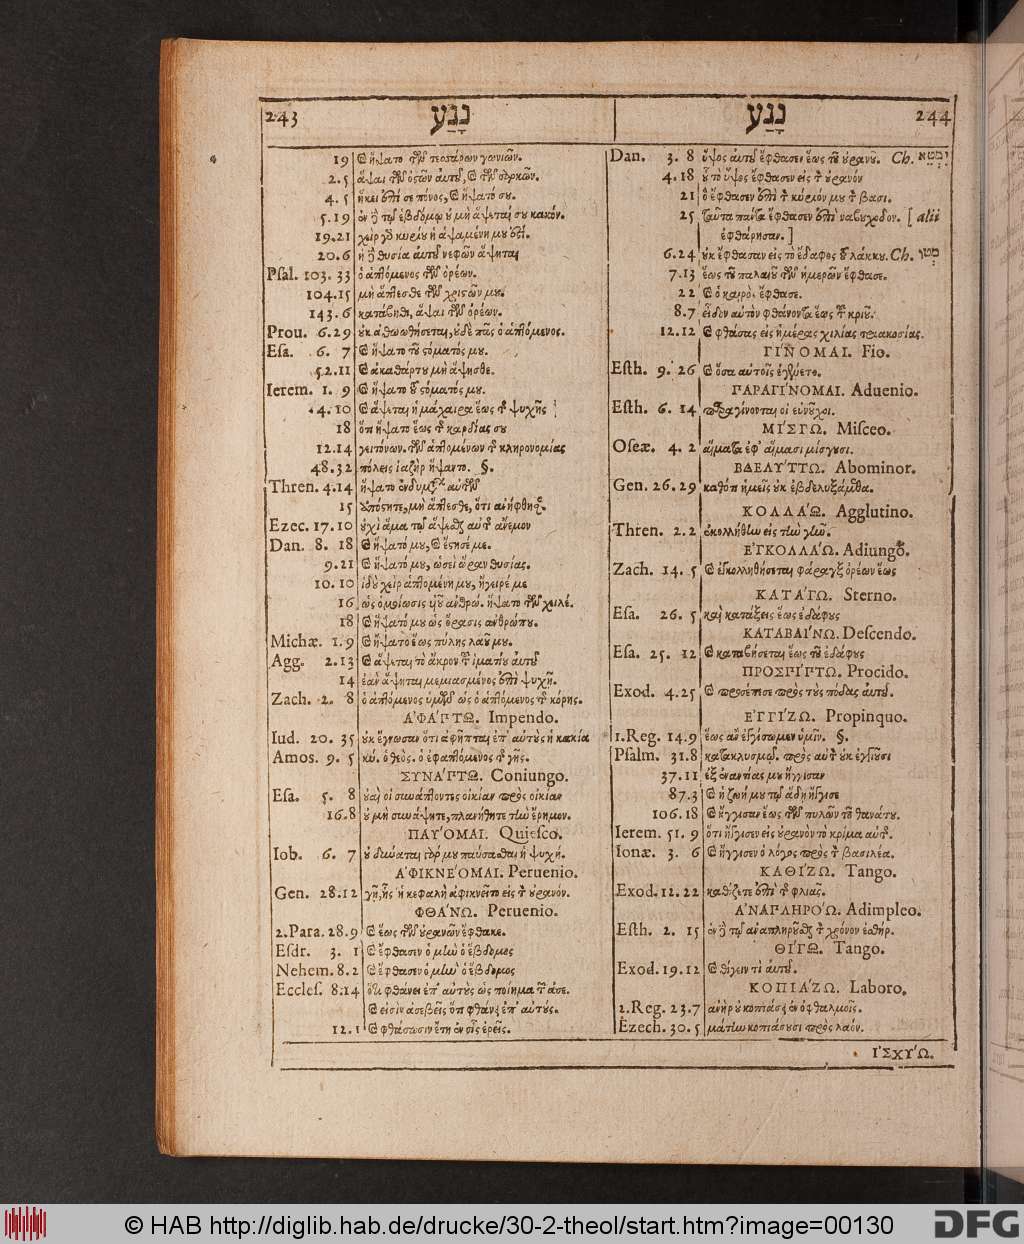 243 נָגַע
19 καὶ ἥψατο τῶν τεσσάρων γωνιῶν.
2.5 ἅψαι τῶν ὀστῶν αὐτοῦ, καὶ τῶν σαρκῶν.
4.5 ἥκει ἐπί σε πόνος, καὶ ἥψατό σου.
5.19 ἐν δὲ τῷ ἑβδόμῳ οὐ μὴ ἅψεται σου κακόν.
19.21 χεὶρ γὰρ κυρίου ἡ ἁψαμένη μου ἐστί.
20.6 ἡ δὲ θυσία αὐτοῦ νεφῶν ἅψηται
Psal. 103.33 ὁ ἁπτόμενος τῶν ὀρέων.
104.15 μὴ ἅπτεσθε τῶν χριστῶν μου.
143.6 κατάβηθι, ἅψαι τῶν ὀρέων.
Prou. 6.29 οὐκ ἀθωωθήσεται, οὐδὲ πᾶς ὁ ἁπτόμενος.
Esa. 6.7 καὶ ἥψατο τοῦ στόματός μου.
52.11 καὶ ἀκαθάρτου μὴ ἅψησθε.
Ierem. 1.9 καὶ ἥψατο τοῦ στόματός μου.
4.10 καὶ ἅψεται ἡ μάχαιρα ἕως τῆς ψυχῆς
18 ὅτι ἥψατο ἕως τῆς καρδίας σου
12.14 γειτόνων. τῶν ἁπτομένων τῆς κληρονομίας
48.32 πόλεις ἰαζὴρ ἥψαντο. §.
Thren. 4.14 ἥψατο ἐνδυμάτων αὐτῶν
15 ἀπόστητε, μὴ ἅπτεσθε, ὅτι ἀνήφθησαν
Ezec. 17.10 οὐχὶ ἅμα τῷ ἅψασθαι αὐτῆς ἄνεμον
Dan. 8.18 καὶ ἥψατό μου, καὶ ἔστησέ με.
9.21 καὶ ἥψατό μου, ὡσεὶ ὥραν θυσίας.
10.10 ἰδοὺ χεὶρ ἁπτομένη μου, ἤγειρέ με
16 ὡς ὁμοίωσις υἱοῦ ἀνθρώ. ἥψατο τῶν χειλέ.
18 καὶ ἥψατό μου ὡς ὅρασις ἀνθρώπου.
Michæ. 1.9 καὶ ἥψατο ἕως πύλης λαοῦ μου.
Agg. 2.13 καὶ ἅψεται τὸ ἄκρον τοῦ ἱματίου αὐτοῦ
14 ἐὰν ἅψηται μεμιασμένος ἐπὶ ψυχῇ.
Zach. 2.8 ὁ ἁπτόμενος ὑμῶν ὡς ὁ ἁπτόμενος τῆς κόρης.
ἈΦΆΠΤΩ. Impendo.
Iud. 20.35 οὐκ ἔγνωσαν ὅτι ἀφῆπται ἐπ' αὐτοὺς ἡ κακία
Amos. 9.5 κύ. ὁ θεός. ὁ ἐφαπτόμενος τῆς γῆς.
ΣΥΝΆΠΤΩ. Coniungo.
Esa. 5.8 οὐαὶ οἱ συνάπτοντες οἰκίαν πρὸς οἰκίαν
16.8 οὐ μὴ συνάψητε, πλανήθητε τὴν ἔρημον.
ΠΑΎΟΜΑΙ. Quiesco.
Iob. 6.7 οὐ δύναται γάρ μου παύσασθαι ἡ ψυχή.
ἈΦΙΚΝΈΟΜΑΙ. Peruenio.
Gen. 28.12 γῆ, ἧς ἡ κεφαλὴ ἀφικνεῖτο εἰς τὸν οὐρανόν.
ΦΘΆΝΩ. Peruenio.
2.Para. 28.9 καὶ ἕως τῶν οὐρανῶν ἔφθακε.
Esdr. 3.1 καὶ ἔφθασεν ὁ μὴν ὁ ἕβδομος
Nehem. 8.2 καὶ ἔφθασεν ὁ μὴν ὁ ἕβδομος
Eccles. 8.14 ὅτι φθάνει ἐπ' αὐτοὺς ὡς ποίημα τῶν ἀσε.
καὶ εἰσὶν ἀσεβεῖς ὅτι φθάνει ἐπ' αὐτούς.
12.1 καὶ φθάσωσιν ἔτη ἐν οἷς ἐρεῖς.
נָגַע 244
Dan. 3.8 ὕψος αὐτοῦ ἔφθασεν ἕως τοῦ οὐρανοῦ. Ch. יִמְטֵא
4.18 οὗ τὸ ὕψος ἔφθασεν εἰς τὸν οὐρανόν
21 ὃ ἔφθασεν ἐπὶ τὸν κύριόν μου τὸν βασι.
25 ταῦτα πάντα ἔφθασεν ἐπὶ ναβουχοδον. [alii
ἐφθάρησαν.]
6.24 οὐκ ἔφθασαν εἰς τὸ ἔδαφος τοῦ λάκκου. Ch. מְטוֹ
7.13 ἕως τοῦ παλαιοῦ τῶν ἡμερῶν ἔφθασε.
22 καὶ ὁ καιρὸς ἔφθασε.
8.7 εἶδον αὐτὸν φθάνοντα ἕως τοῦ κριοῦ.
12.12 καὶ φθάσας εἰς ἡμέρας χιλίας τριακοσίας.
ΓΊΝΟΜΑΙ. Fio.
Esth. 9.26 καὶ ὅσα αὐτοῖς ἐγένετο.
ΠΑΡΑΓΊΝΟΜΑΙ. Aduenio.
Esth. 6.14 παραγίνονται οἱ εὐνοῦχοι.
ΜΊΣΓΩ. Misceo.
Oseæ. 4.2 αἵματα ἐφ' αἵμασι μίσγουσι.
ΒΔΕΛΎΤΤΩ. Abominor.
Gen. 26.29 καθότι ἡμεῖς οὐκ ἐβδελυξάμεθα.
ΚΟΛΛΆΩ. Agglutino.
Thren. 2.2 ἐκολλήθην εἰς τὴν γῆν.
ἘΓΚΟΛΛΆΩ. Adiungo.
Zach. 14.5 καὶ ἐγκολληθήσεται φάραγξ ὀρέων ἕως
ΚΑΤΆΓΩ. Sterno.
Esa. 26.5 καὶ κατάξεις ἕως ἐδάφους
ΚΑΤΑΒΑΊΝΩ. Descendo.
Esa. 25.12 καὶ καταβήσεται ἕως τοῦ ἐδάφους
ΠΡΟΣΠΊΠΤΩ. Procido.
Exod. 4.25 καὶ προσέπεσε πρὸς τοὺς πόδας αὐτοῦ.
ἘΓΓΊΖΩ. Propinquo.
1.Reg. 14.9 ἕως ἂν ἐγγίσωμεν ὑμῖν. §.
Psalm. 31.8 κατακλυσμῷ. πρὸς αὐτὸν οὐκ ἐγγιοῦσι
37.11 ἐξ ἐναντίας μου ἤγγισαν
87.3 καὶ ἡ ζωή μου τῷ ᾅδῃ ἤγγισε
106.18 καὶ ἤγγισαν ἕως τῶν πυλῶν τοῦ θανάτου.
Ierem. 51.9 ὅτι ἤγγισεν εἰς οὐρανὸν τὸ κρίμα αὐτῆς.
Ionæ. 3.6 καὶ ἤγγισεν ὁ λόγος πρὸς τὸν βασιλέα.
ΚΑΘΊΖΩ. Tango.
Exod. 12.22 καθίζετε ἐπὶ τῆς φλιᾶς.
ἈΝΑΠΛΗΡΌΩ. Adimpleo.
Esth. 2.15 ἐν δὲ τῷ ἀναπληροῦσθαι τὸν χρόνον ἐσθήρ.
ΘΊΓΩ. Tango.
Exod. 19.12 καὶ θίγειν τι αὐτοῦ.
ΚΟΠΙΆΖΩ. Laboro.
2.Reg. 23.7 ἀνὴρ οὐ κοπιάσει ἐν ὀφθαλμοῖς.
Ezech. 30.5 μάτην κοπιάσουσι πρὸς λαόν.
ἸΣΧΎΩ.
© HAB http://diglib.hab.de/drucke/30-2-theol/start.htm?image=00130
DFG